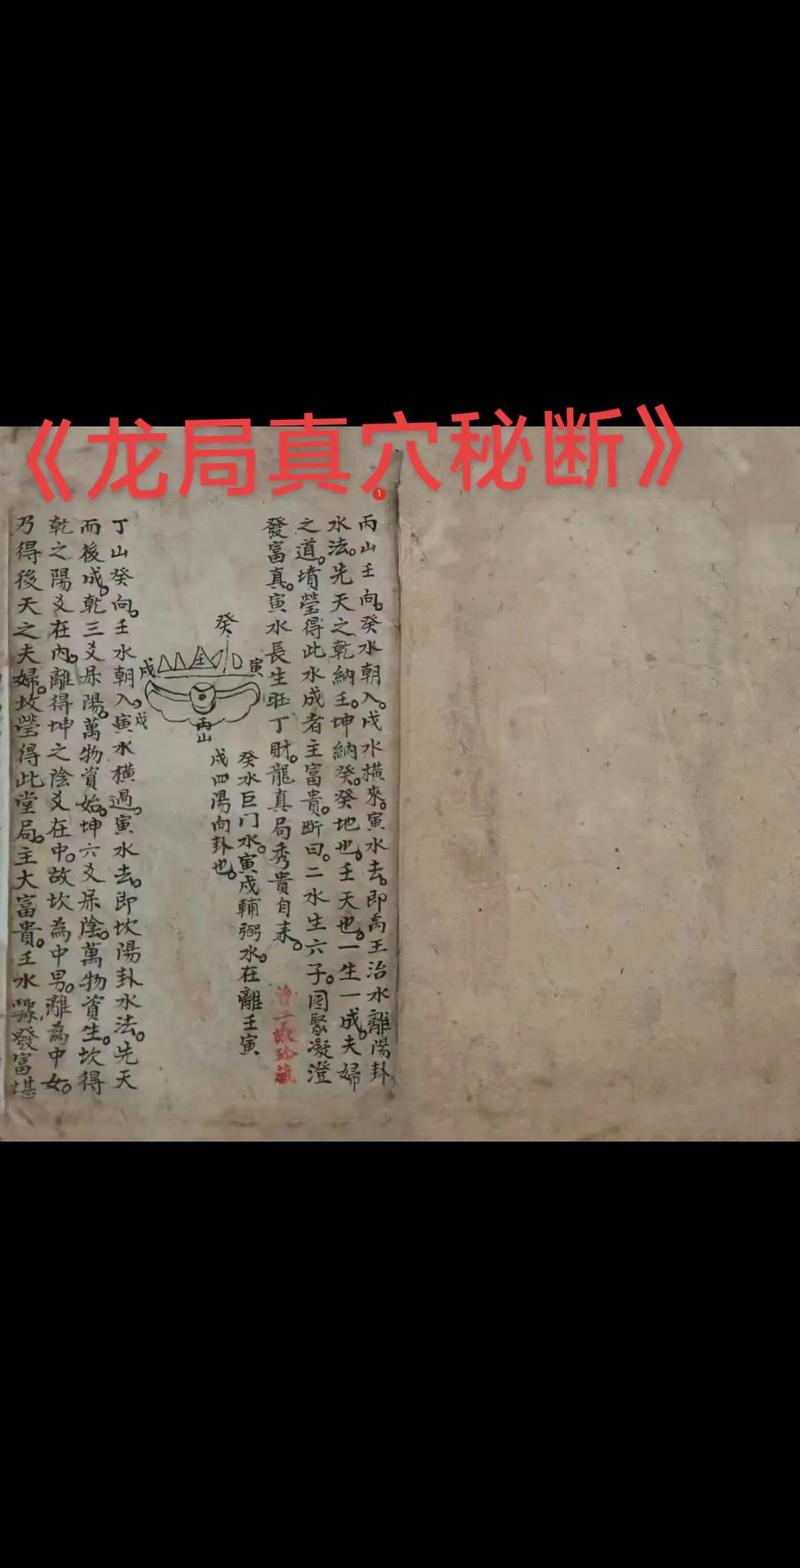 《龙局真穴秘断》
1
丙山壬向。癸水朝入。戌水橫來。寅水去。即禹王治水離陽卦
水法。先天之乾納壬。坤納癸。癸地也。壬天也。一生一成。夫婦
之道。墳塋得此水成者主富貴。斷曰。二水生六子。團聚凝澄
發富真。寅水長生旺丁財。龍真局秀貴自来。
癸水巨门水。寅戌輔弼水。在離壬寅
戌四陽向卦也。
癸
寅
戌
丙山
丁山癸向。壬水朝入。戌
寅水橫過。寅水去。即坎陽卦水法。先天
而後成。乾三爻屬陽。萬物資始。坤六爻屬陰。萬物資生。坎得
乾之陽爻在内。離得坤之陰爻在中。故坎為中男。離為中女。
乃得後天之夫婦。坟塋得此堂局。主大富貴。壬水發富堪